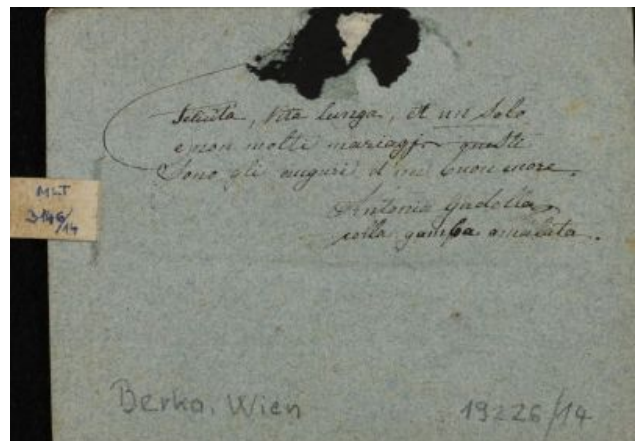 Felicita, Vita lunga, et un Solo
e non molti mariaggi questi
Sono gli auguri d'un buon cuore.
Antonio
colla gamba amalata.
MLT
3146/14
Berka, Wien
19226/14